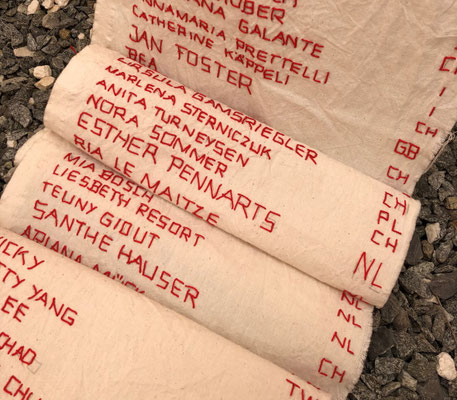 HUBER
ANA GALANTE
ANNAMARIA PRETTELLI
CATHERINE KÄPPELI I
JAN FOSTER CH
BEA GB
CH
URSULA GAMSRIEGLER
MARLENA STERNICZUK CH
ANITA TURNEYSEN PL
NORA SOMMER CH
ESTHER PENNARTS NL
RIA LE MAITZE
MIA BOSCH NL
LIESBETH RESORT NL
TEUNY GIOUT NL
SANTHE HAUSER CH
ARIANA
VICKY
TTY YANG
EE
CHAO
CHU
TW